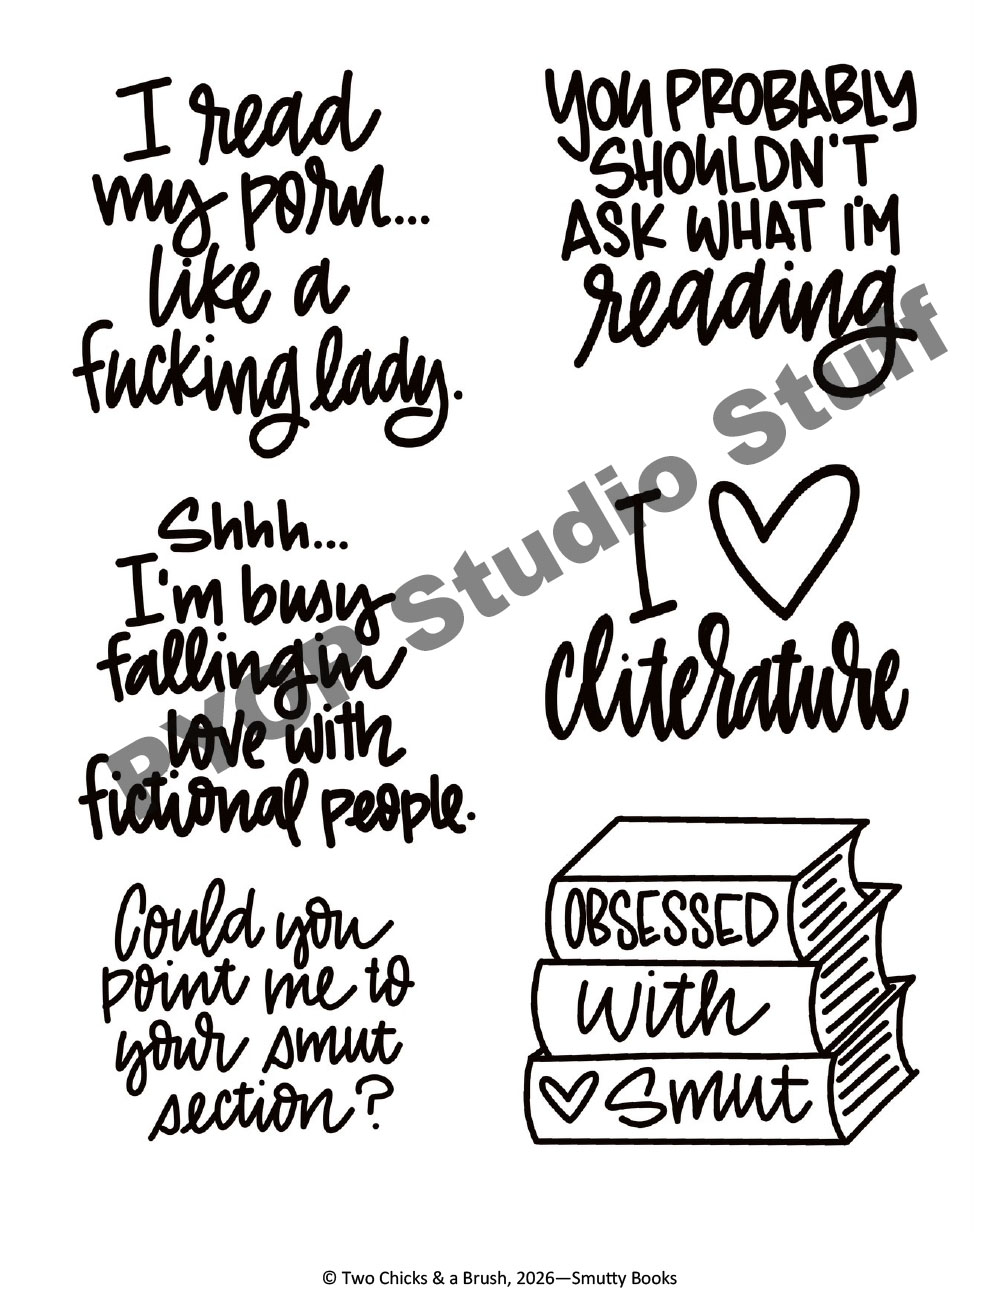 I read
my porn...
like a
fucking lady.
YOU PROBABLY
SHOULDN'T
ASK WHAT I'M
reading
Shhh...
I'm busy
falling in
love with
fictional people.
I ♡
cliterature
Could you
point me to
your smut
section?
OBSESSED
with
♡ Smut
PYOP Studio Stuff
© Two Chicks & a Brush, 2026—Smutty Books